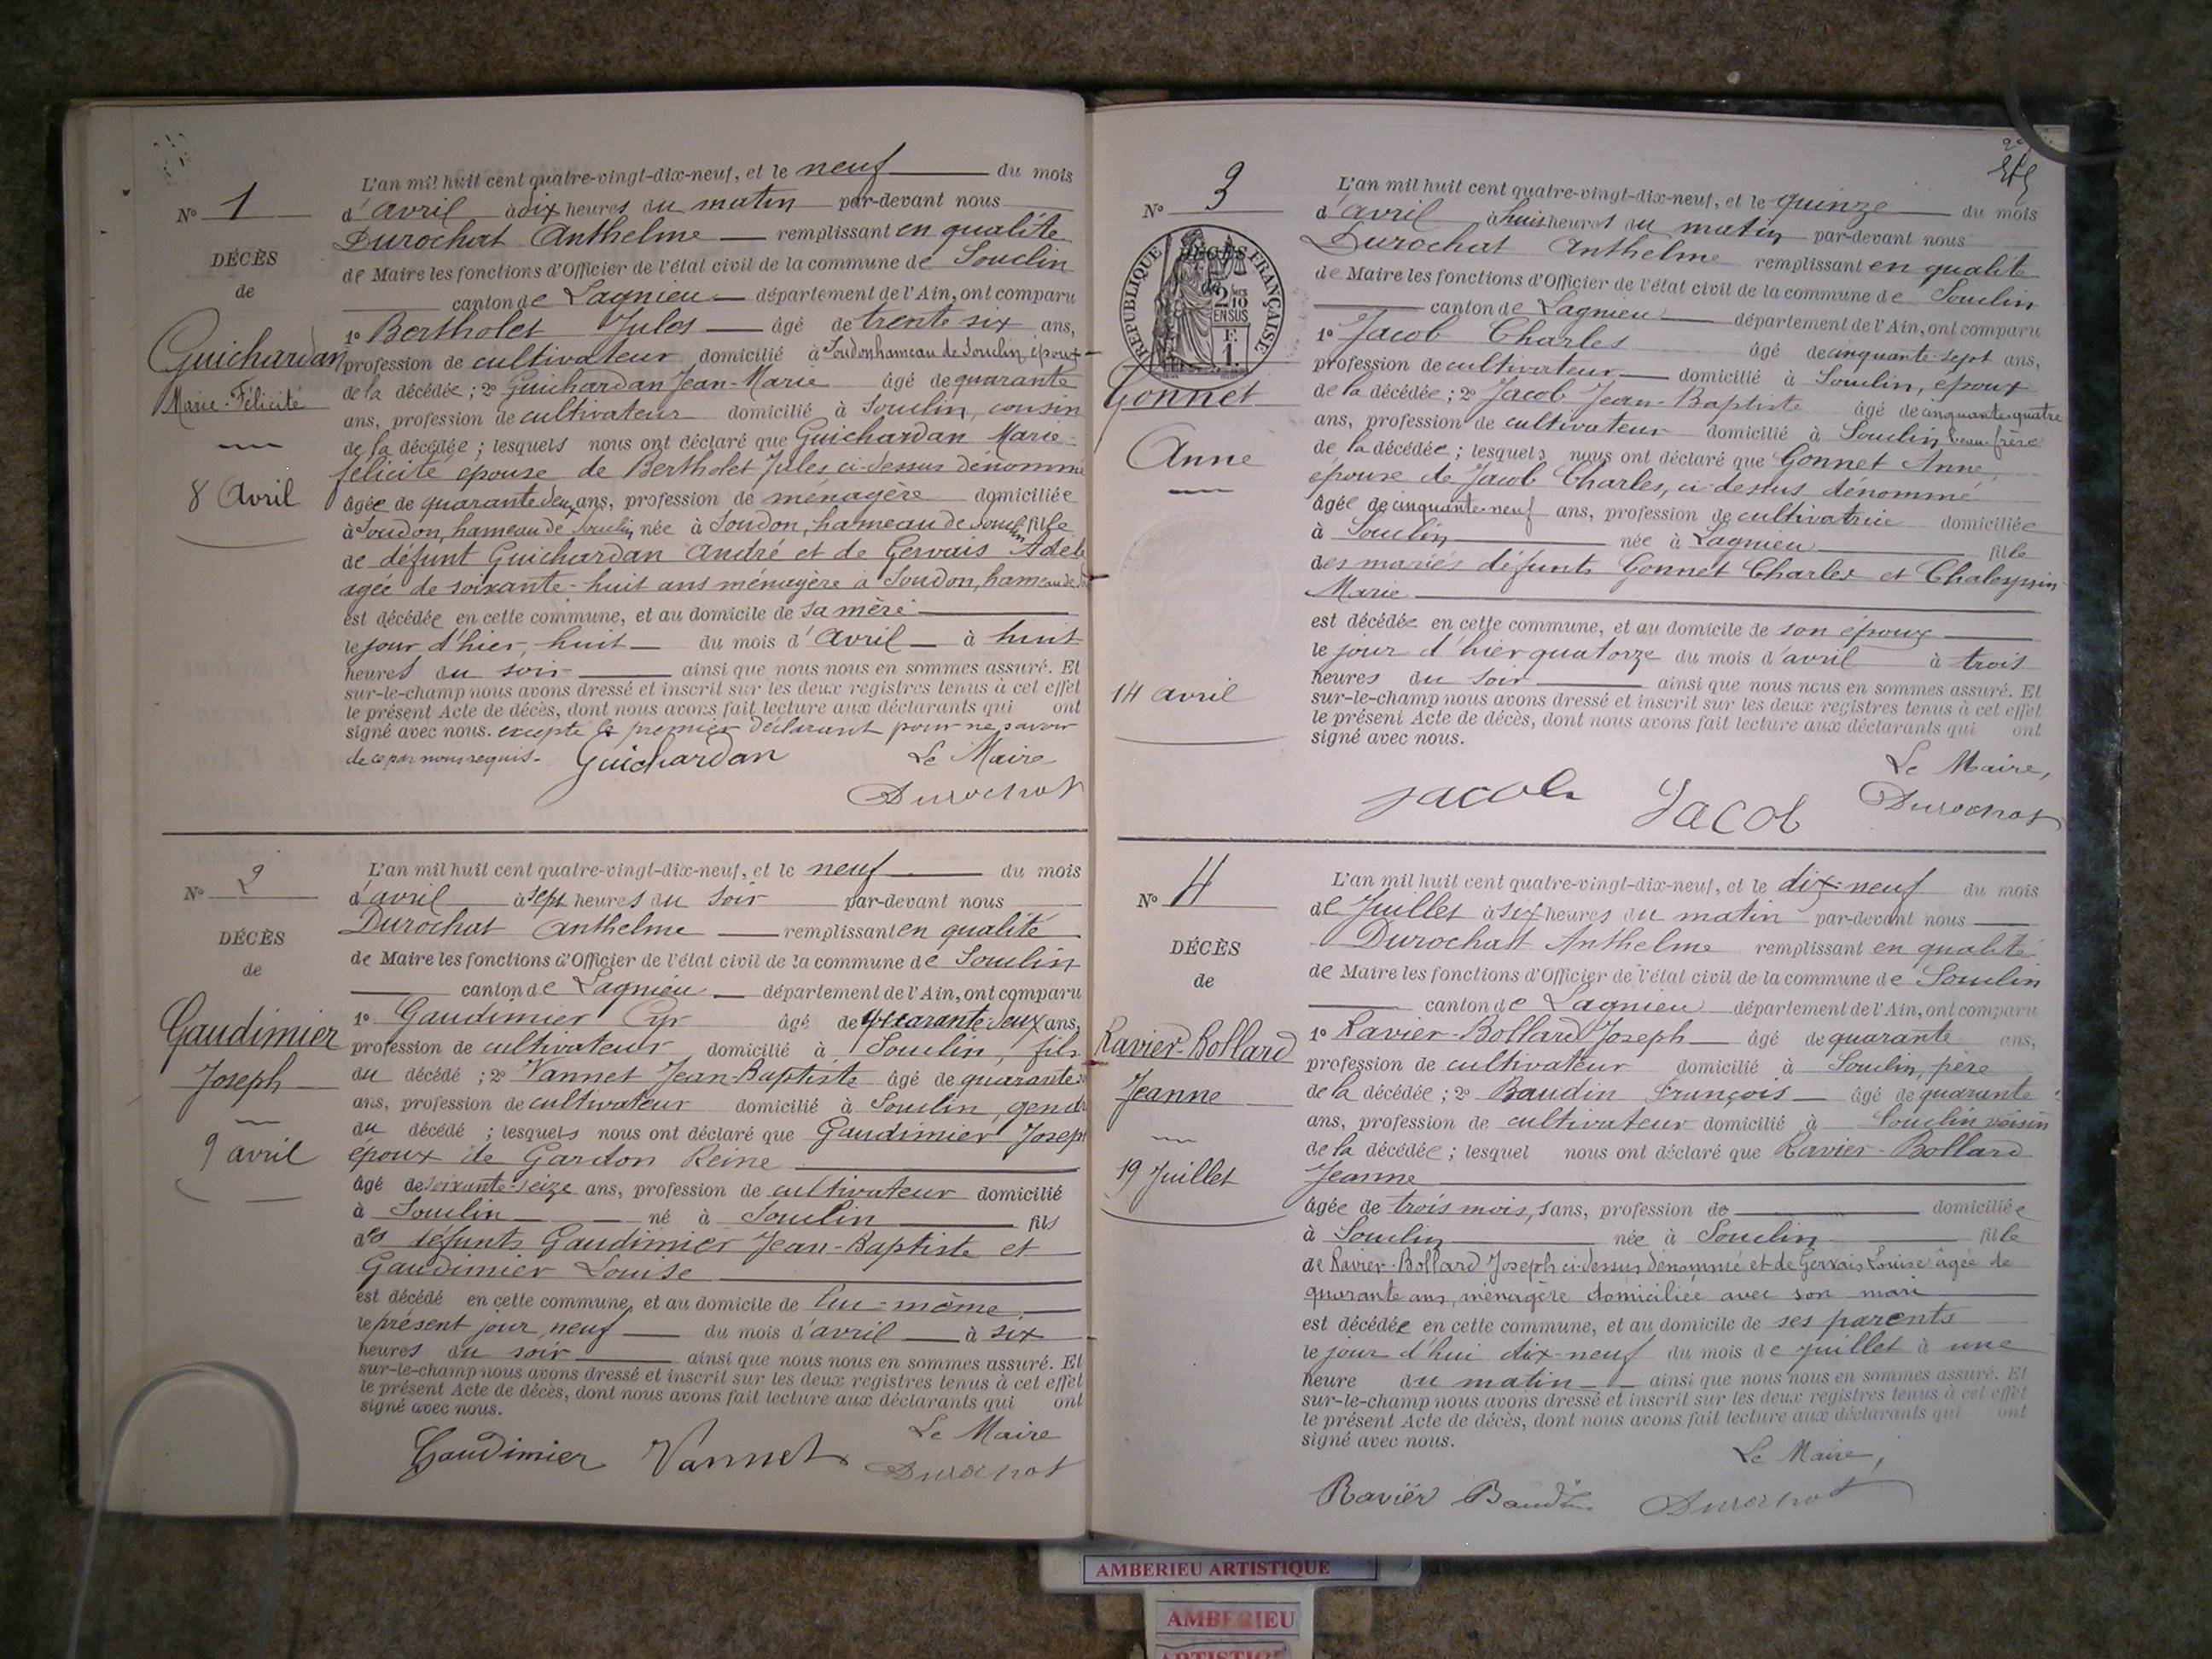 N° 1
DÉCÈS
de
Guichardan
Marie-Félicité
8 Avril
L'an mil huit cent quatre-vingt-dix-neuf, et le neuf du mois
d'avril à dix heures du matin par-devant nous
Durochat Anthelme remplissant en qualité
de Maire les fonctions d'Officier de l'état civil de la commune de Souclin
canton de Lagnieu département de l'Ain, ont comparu
1° Bertholet Jules âgé de trente six ans,
profession de cultivateur domicilié à Soudon hameau de Souclin, époux
de la décédée ; 2° Guichardan Jean-Marie âgé de quarante
ans, profession de cultivateur domicilié à Souclin, cousin
de la décédée ; lesquels nous ont déclaré que Guichardan Marie-
félicité épouse de Bertholet Jules ci-dessus dénommé
âgée de quarante deux ans, profession de ménagère domiciliée
à Soudon, hameau de Souclin, née à Soudon, hameau de Souclin fille
de défunt Guichardan André et de Gervais Adèle
agée de soixante-huit ans ménagère à Soudon, hameau de
est décédée en cette commune, et au domicile de sa mère
le jour d'hier, huit du mois d'avril à huit
heures du soir ainsi que nous nous en sommes assuré. Et
sur-le-champ nous avons dressé et inscrit sur les deux registres tenus à cet effet
le présent Acte de décès, dont nous avons fait lecture aux déclarants qui ont
signé avec nous. excepté le premier déclarant pour ne savoir
de ce par nous requis.
Guichardan Le Maire
Durochat
N° 2
DÉCÈS
de
Gaudimier
Joseph
9 avril
L'an mil huit cent quatre-vingt-dix-neuf, et le neuf du mois
d'avril à sept heures du soir par-devant nous
Durochat Anthelme remplissant en qualité
de Maire les fonctions d'Officier de l'état civil de la commune de Souclin
canton de Lagnieu département de l'Ain, ont comparu
1° Gaudimier Cyr âgé de quarante-deux ans,
profession de cultivateur domicilié à Souclin, fils
du décédé ; 2° Vannet Jean-Baptiste âgé de quarante
ans, profession de cultivateur domicilié à Souclin, gendre
du décédé ; lesquels nous ont déclaré que Gaudimier Joseph
époux de Gardon Reine
âgé de soixante-seize ans, profession de cultivateur domicilié
à Souclin né à Souclin fils
des défunts Gaudimier Jean-Baptiste et
Gaudimier Louise
est décédé en cette commune, et au domicile de lui-même
le présent jour, neuf du mois d'avril à six
heures du soir ainsi que nous nous en sommes assuré. Et
sur-le-champ nous avons dressé et inscrit sur les deux registres tenus à cet effet
le présent Acte de décès, dont nous avons fait lecture aux déclarants qui ont
signé avec nous.
Le Maire
Gaudimier Vannet Durochat
N° 3
RÉPUBLIQUE FRANÇAISE
DÉCÈS
de
2/10
EN SUS
F.
1.
Gonnet
Anne
14 avril
L'an mil huit cent quatre-vingt-dix-neuf, et le quinze du mois
d'avril à huit heures du matin par-devant nous
Durochat Anthelme remplissant en qualité
de Maire les fonctions d'Officier de l'état civil de la commune de Souclin
canton de Lagnieu département de l'Ain, ont comparu
1° Jacob Charles âgé de cinquante-sept ans,
profession de cultivateur domicilié à Souclin, époux
de la décédée ; 2° Jacob Jean-Baptiste âgé de cinquante-quatre
ans, profession de cultivateur domicilié à Souclin beau-frère
de la décédée ; lesquels nous ont déclaré que Gonnet Anne,
épouse de Jacob Charles, ci-dessus dénommé
âgée de cinquante-neuf ans, profession de cultivatrice domiciliée
à Souclin née à Lagnieu fille
des mariés défunts Gonnet Charles et
Marie
est décédée en cette commune, et au domicile de son époux
le jour d'hier quatorze du mois d'avril à trois
heures du soir ainsi que nous nous en sommes assuré. Et
sur-le-champ nous avons dressé et inscrit sur les deux registres tenus à cet effet
le présent Acte de décès, dont nous avons fait lecture aux déclarants qui ont
signé avec nous.
Le Maire,
Jacob Jacob Durochat
N° 4
DÉCÈS
de
Ravier-Bollard
Jeanne
19 Juillet
L'an mil huit cent quatre-vingt-dix-neuf, et le dix-neuf du mois
de Juillet à six heures du matin par-devant nous
Durochat Anthelme remplissant en qualité
de Maire les fonctions d'Officier de l'état civil de la commune de Souclin
canton de Lagnieu département de l'Ain, ont comparu
1° Ravier-Bollard Joseph âgé de quarante ans,
profession de cultivateur domicilié à Souclin, père
de la décédée ; 2° Baudin François âgé de quarante
ans, profession de cultivateur domicilié à Souclin voisin
de la décédée ; lesquel nous ont déclaré que Ravier-Bollard
Jeanne
âgée de trois mois, sans, profession de domiciliée
à Souclin née à Souclin fille
de Ravier-Bollard Joseph ci-dessus dénommé et de Gervais Louise âgée de
quarante ans, ménagère domiciliée avec son mari
est décédée en cette commune, et au domicile de ses parents
le jour d'hui dix-neuf du mois de juillet à une
heure du matin ainsi que nous nous en sommes assuré. Et
sur-le-champ nous avons dressé et inscrit sur les deux registres tenus à cet effet
le présent Acte de décès, dont nous avons fait lecture aux déclarants qui ont
signé avec nous.
Le Maire,
Ravier Baudin Durochat
AMBERIEU ARTISTIQUE
AMBERIEU
ARTISTIQUE